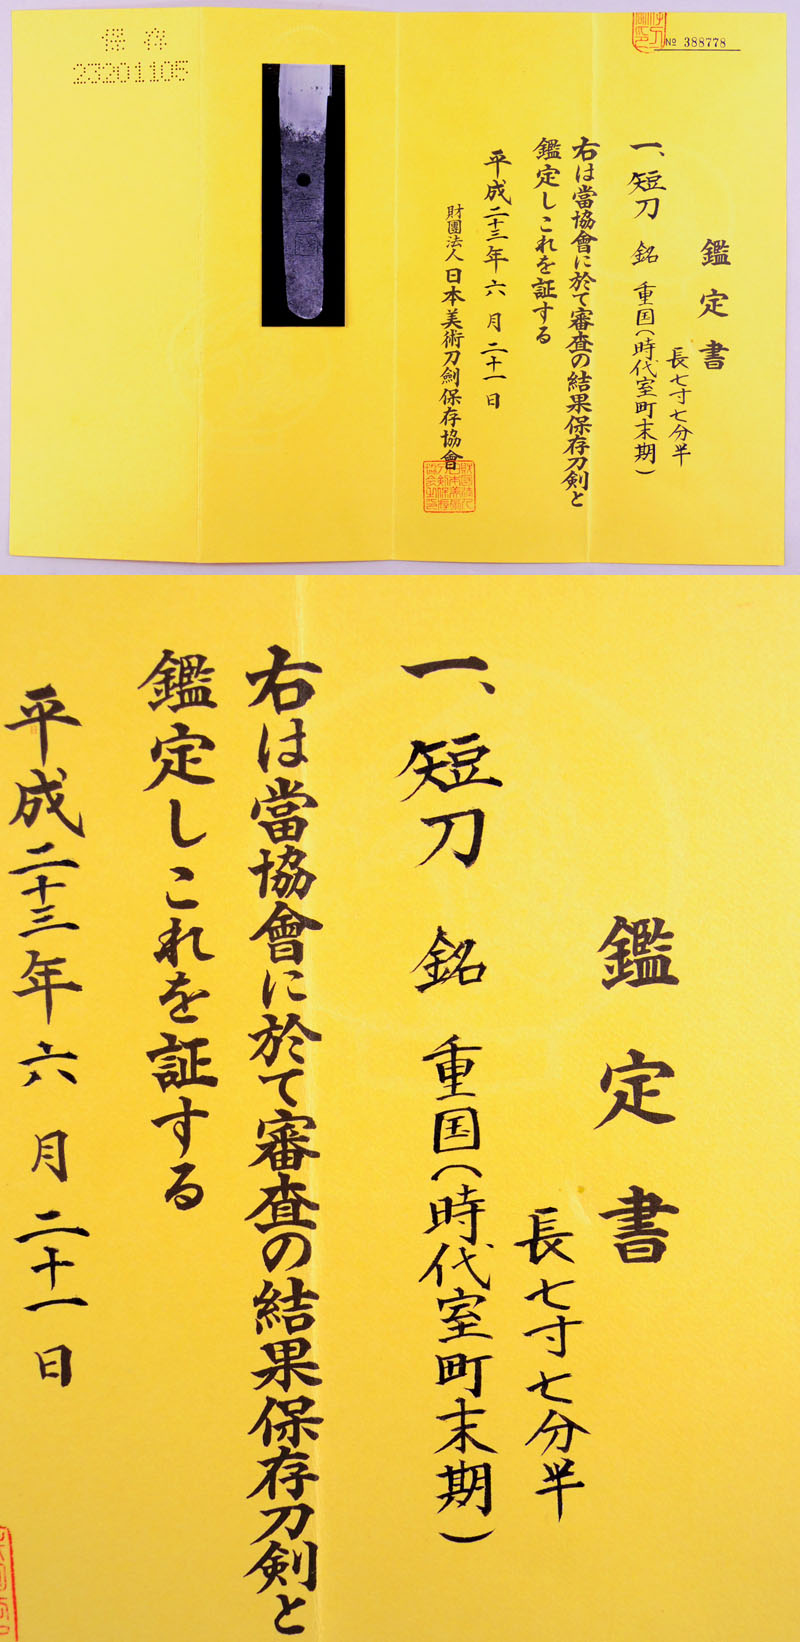 保存
23201105
№ 388778
鑑定書
一、短刀 銘 重国(時代室町末期)
長七寸七分半
右は當協會に於て審査の結果保存刀剣と
鑑定しこれを証する
平成二十三年六月二十一日
財團法人日本美術刀劍保存協會
鑑定書
一、短刀 銘 重国(時代室町末期)
長七寸七分半
右は當協會に於て審査の結果保存刀剣と
鑑定しこれを証する
平成二十三年六月二十一日